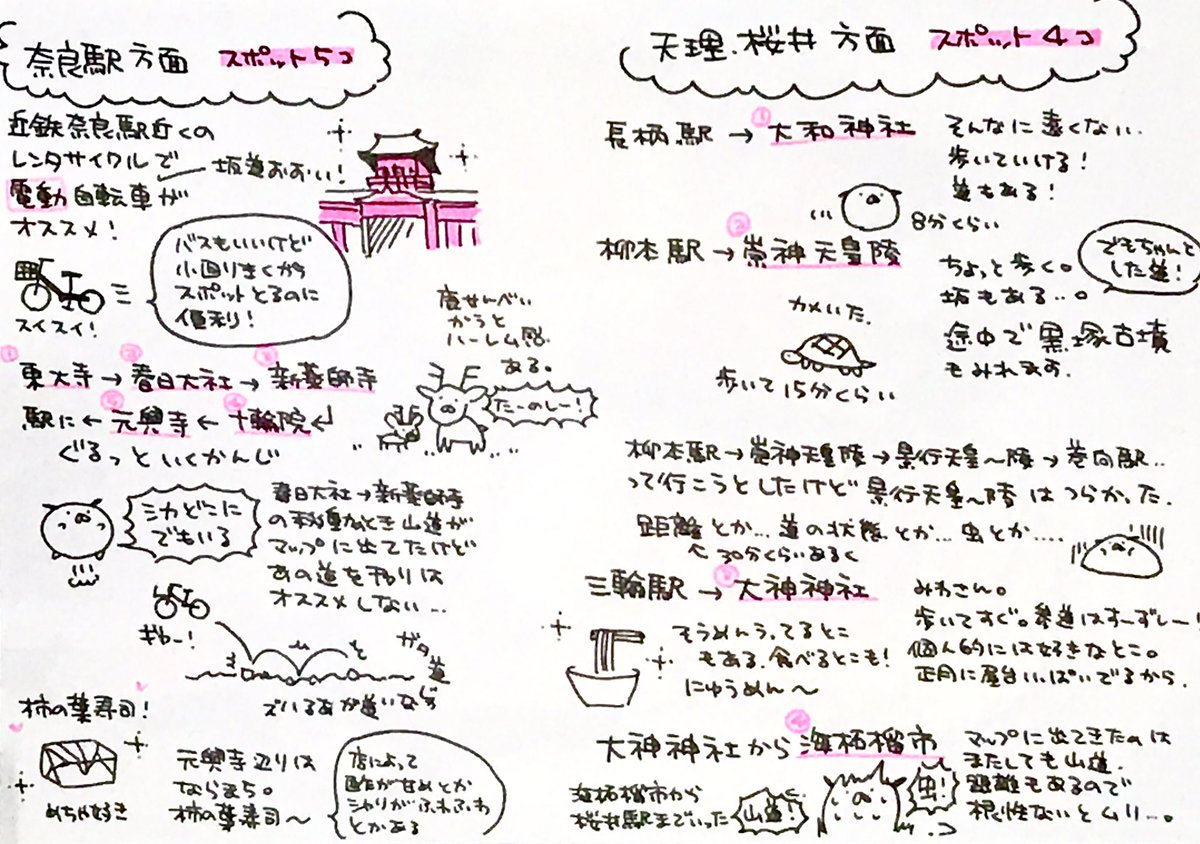 奈良駅方面 スポット5コ
近鉄奈良駅近くの
レンタサイクルで
電動自転車が
オススメ!
坂道おおい!
バスもいいけど
小回りきくから
スポットとるのに
便利!
スイスイ!
鹿せんべい
かうと
ハーレム感
ある。
たーのしー!
① ② ③
東大寺→春日大社→新薬師寺
⑤ ④
駅に←元興寺←十輪院↲
ぐるっといくかんじ
シカどこに
でもいる
春日大社→新薬師寺
の移動のとき山道が
マップに出てたけど
あの道を下りは
オススメしない…
ギャー!
ガタ
道
柿の葉寿司!
めちゃ好き
元興寺辺りは
ならまち。
柿の葉寿司〜
店によって
酢が甘めとか
シャリがふわふわ
とかある
天理・桜井方面 スポット4コ
①
長柄駅→大和神社
そんなに遠くない。
歩いていける!
道もある!
8分くらい
②
柳本駅→崇神天皇陵
ちょっと歩く。
坂もある…。
でもちゃんと
した道!
途中で黒塚古墳
もみれます。
カメいた。
歩いて15分くらい
柳本駅→崇神天皇陵→景行天皇〜陵→巻向駅…
って行こうとしたけど景行天皇〜陵はつらかった。
距離とか…道の状態とか…虫とか……
30分くらいあるく
③
三輪駅→大神神社
みわさん。
歩いてすぐ。参道はすーずしー!
個人的には好きなとこ。
正月に屋台いっぱいでるから。
そうめんうってるとこ
もある。食べるとこも!
にゅうめん〜
④
大神神社から海柘榴市
海柘榴市から
桜井駅までいった
山道!
虫!
マップに出てきたのは
またしても山道。
距離もあるので
根性ないとムリ…。